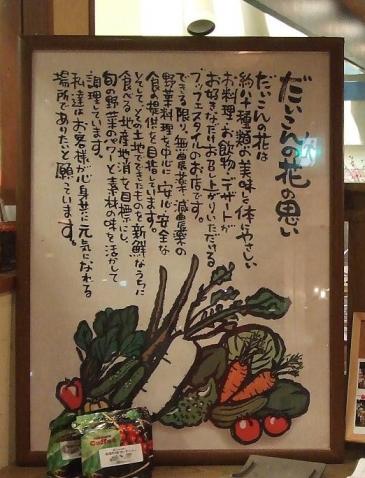 だいこんの花の思い
だいこんの花は
約八十種類の美味しく体にやさしい
お料理・お飲物・デザートが
お好きなだけお召し上がりいただける
ブッフェスタイルのお店です。
できる限り、無農薬・減農薬の
野菜料理を中心に安心・安全な
食の提供を目指しています。
そしてその土地でできたものを新鮮なうちに
食べる「地産地消」を目標にし、
旬の野菜のパワーと素材の味を活かして
調理しています。
私達はお客様が心身共に元気になれる
場所でありたいと願っています。
Coffee